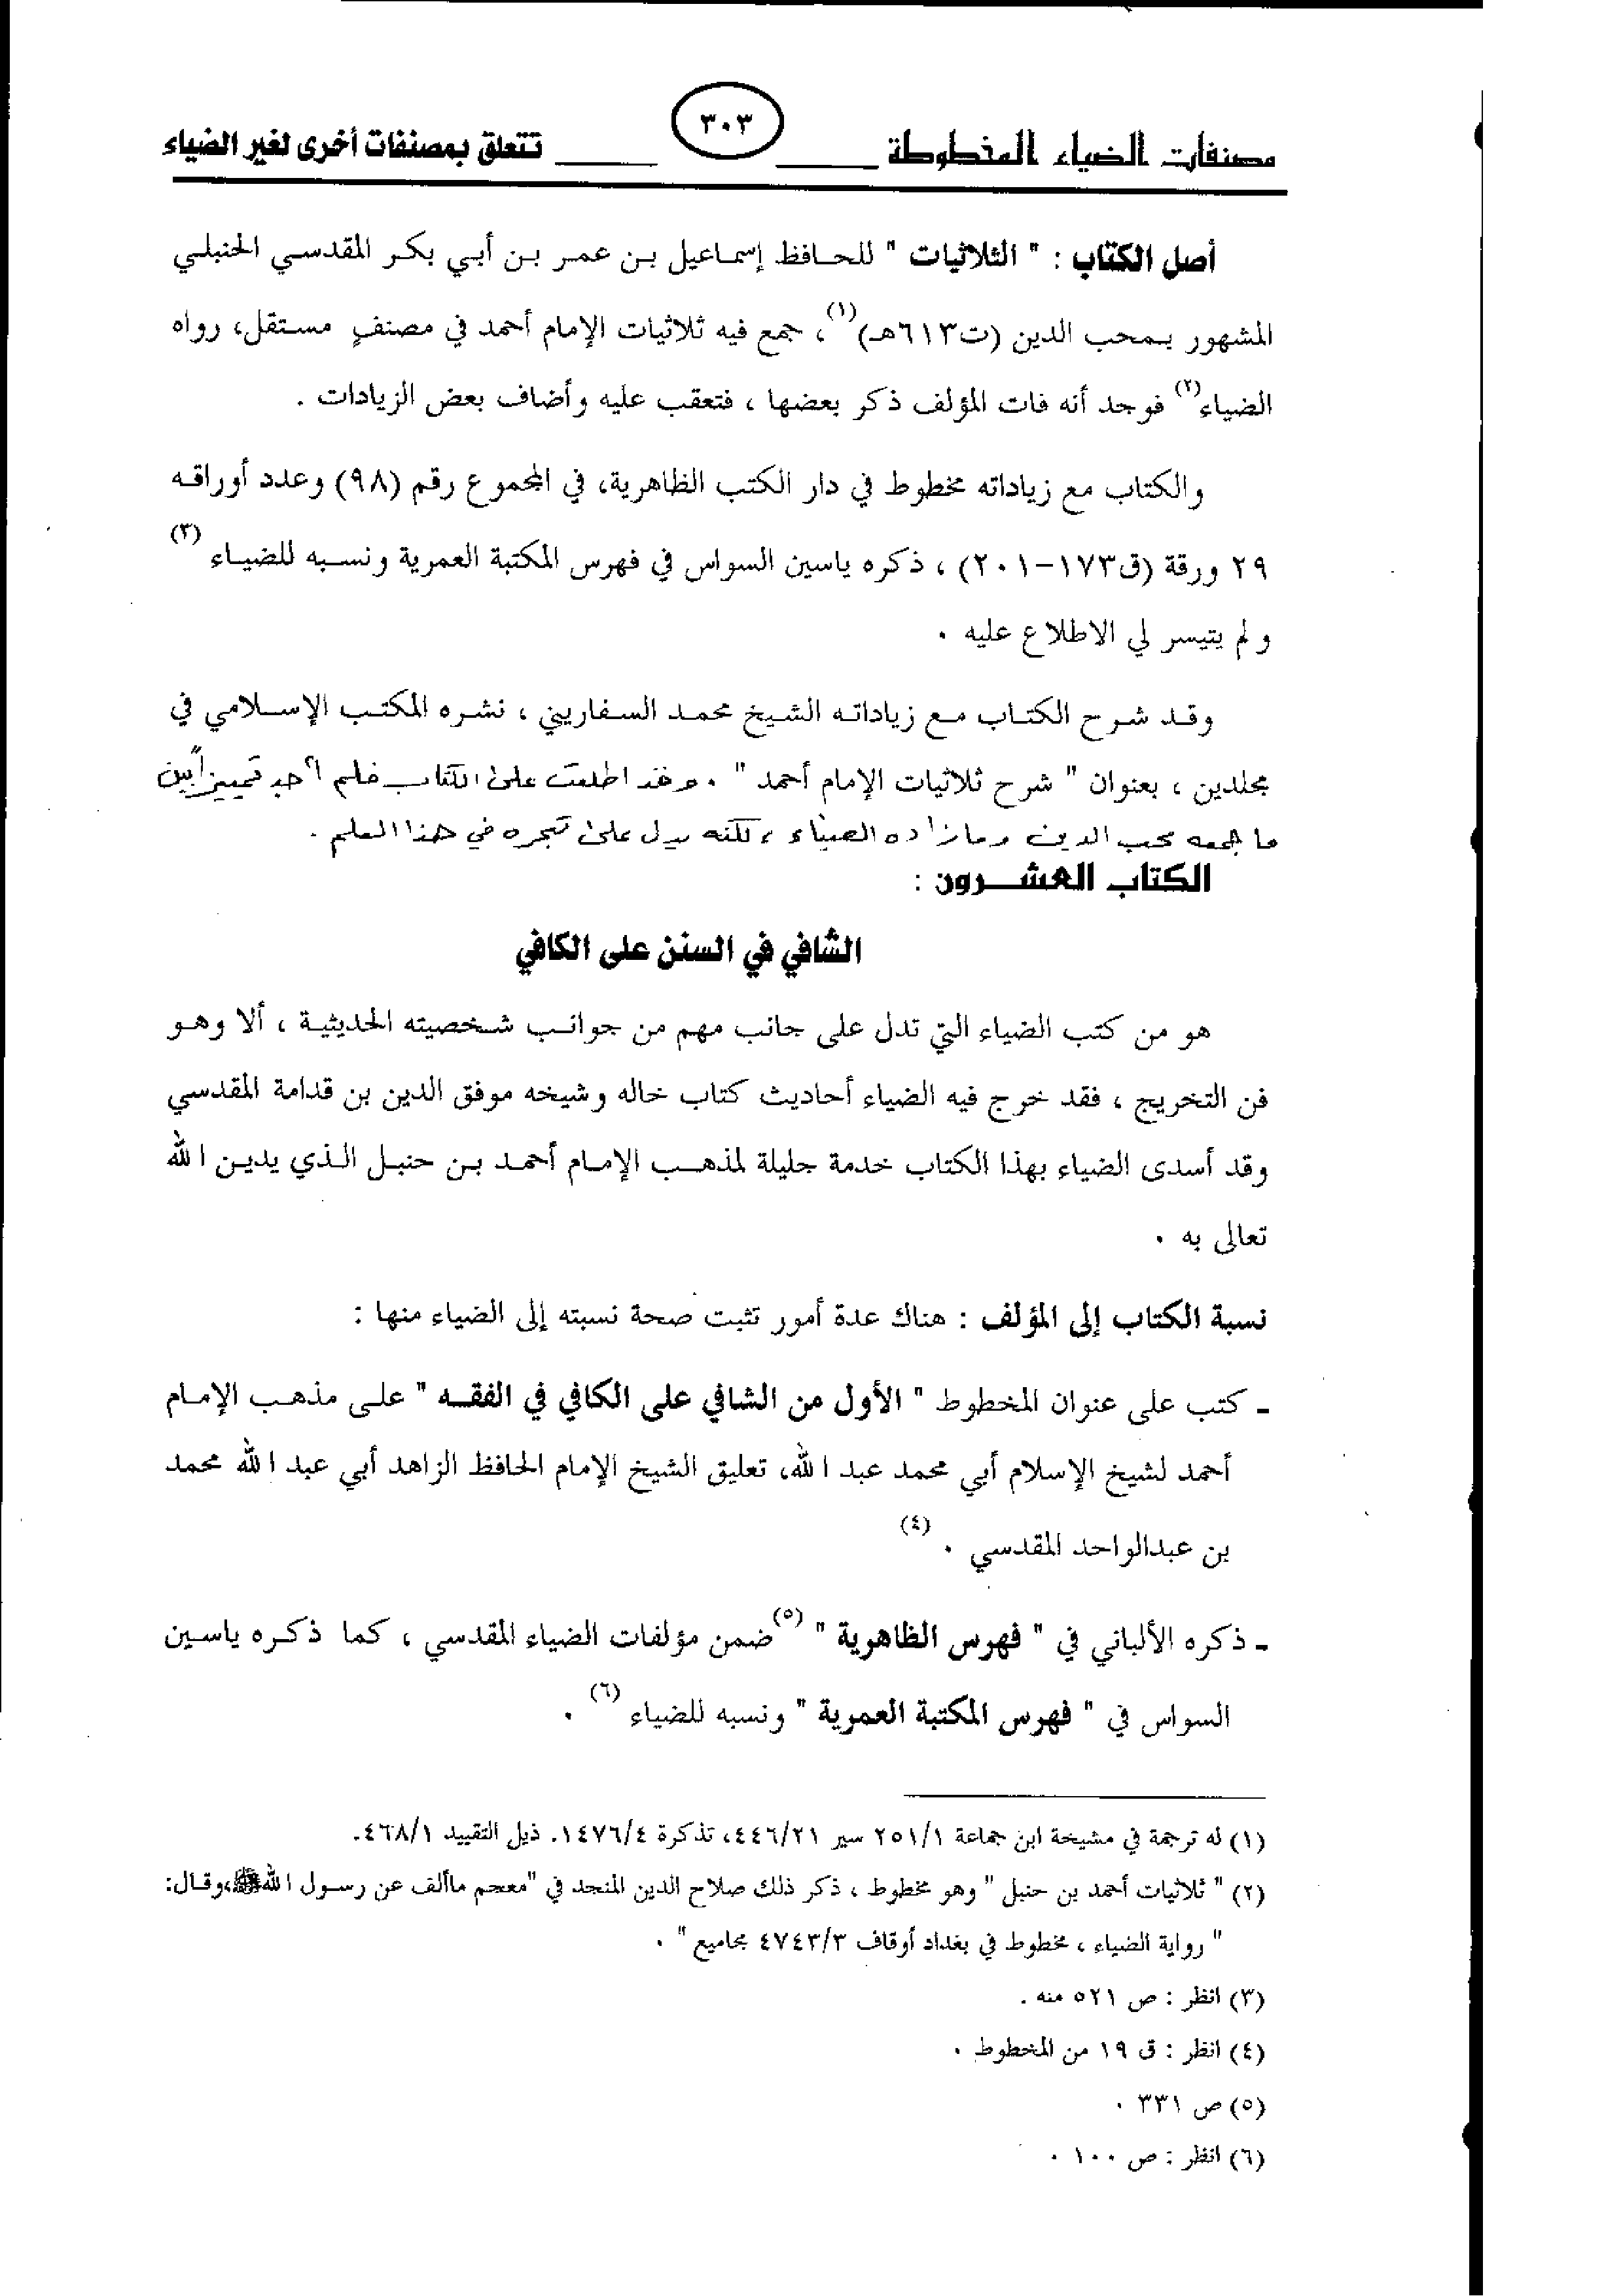 مصنفات الضياء المخطوطة ـــــــ ٣٠٣ ـــــــ تتعلق بمصنفات أخرى لغير الضياء
أصل الكتاب : " الثلاثيات " للحافظ إسماعيل بن عمر بن أبي بكر المقدسي الحنبلي
المشهور بمحب الدين (ت٦١٣هـ)(١)، جمع فيه ثلاثيات الإمام أحمد في مصنفٍ مستقل، رواه
الضياء(٢) فوجد أنه فات المؤلف ذكر بعضها ، فتعقب عليه وأضاف بعض الزيادات .
والكتاب مع زياداته مخطوط في دار الكتب الظاهرية، في المجموع رقم (٩٨) وعدد أوراقه
٢٩ ورقة (ق١٧٣-٢٠١) ، ذكره ياسين السواس في فهرس المكتبة العمرية ونسبه للضياء (٣)
ولم يتيسر لي الاطلاع عليه .
وقد شرح الكتاب مع زياداته الشيخ محمد السفاريني ، نشره المكتب الإسلامي في
مجلدين ، بعنوان " شرح ثلاثيات الإمام أحمد " . وقد اطلعت على الكتاب فلم أجد تمييزاً بين
ما جمعه محب الدين وما زاده الضياء ، لكنه يدل على تبحره في هذا العلم .
الكتاب العشرون :
الشافي في السنن على الكافي
هو من كتب الضياء التي تدل على جانب مهم من جوانب شخصيته الحديثية ، ألا وهو
فن التخريج ، فقد خرج فيه الضياء أحاديث كتاب خاله وشيخه موفق الدين بن قدامة المقدسي
وقد أسدى الضياء بهذا الكتاب خدمة جليلة لمذهب الإمام أحمد بن حنبل الذي يدين الله
تعالى به .
نسبة الكتاب إلى المؤلف : هناك عدة أمور تثبت صحة نسبته إلى الضياء منها :
- كتب على عنوان المخطوط " الأول من الشافي على الكافي في الفقه " على مذهب الإمام
أحمد لشيخ الإسلام أبي محمد عبد الله، تعليق الشيخ الإمام الحافظ الزاهد أبي عبد الله محمد
بن عبدالواحد المقدسي . (٤)
- ذكره الألباني في " فهرس الظاهرية " (٥) ضمن مؤلفات الضياء المقدسي ، كما ذكره ياسين
السواس في " فهرس المكتبة العمرية " ونسبه للضياء (٦) .
(١) له ترجمة في مشيخة ابن جماعة ٢٥١/١ سير ٤٤٦/٢١، تذكرة ١٤٧٦/٤. ذيل التقييد ٤٦٨/١.
(٢) " ثلاثيات أحمد بن حنبل " وهو مخطوط ، ذكر ذلك صلاح الدين المنجد في "معجم ماألف عن رسول الله ﷺ،وقال:
" رواية الضياء ، مخطوط في بغداد أوقاف ٤٧٤٣/٣ مجاميع " .
(٣) انظر : ص ٥٢١ منه .
(٤) انظر : ق ١٩ من المخطوط .
(٥) ص ٣٣١ .
(٦) انظر : ص ١٠٠ .